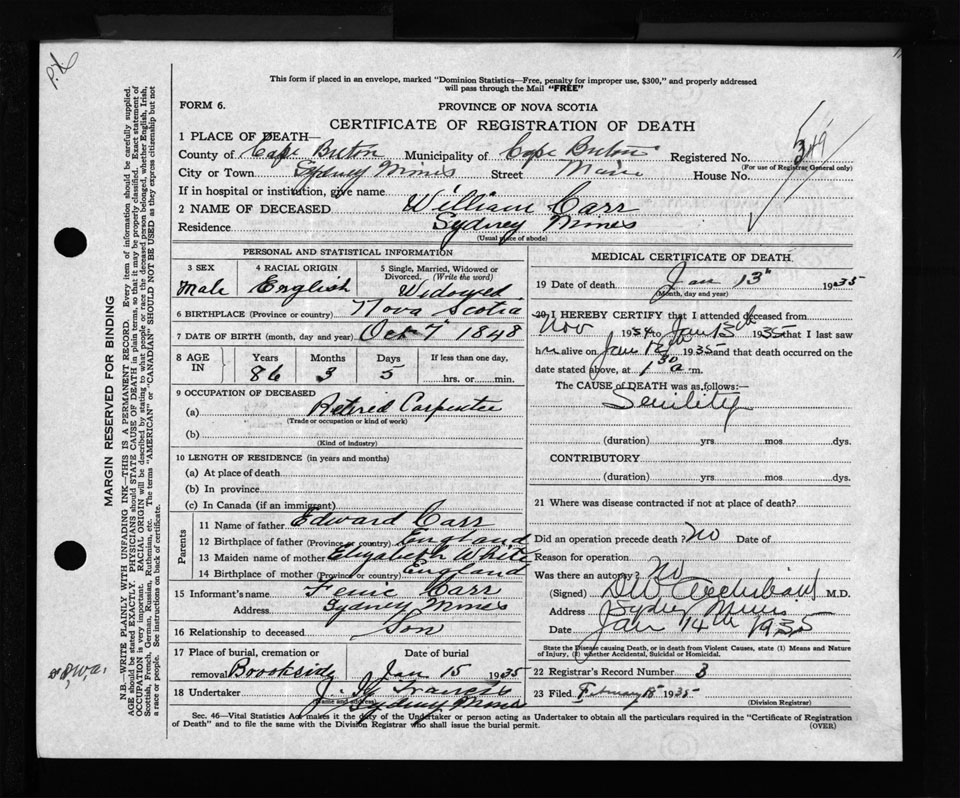 This form if placed in an envelope, marked "Dominion Statistics—Free, penalty for improper use, $300," and properly addressed
will pass through the Mail "FREE"
FORM 6.
PROVINCE OF NOVA SCOTIA
CERTIFICATE OF REGISTRATION OF DEATH
1 PLACE OF DEATH—
County of Cape Breton Municipality of Cape Breton Registered No.
(For use of Registrar General only)
City or Town Sydney Mines Street Main House No.
If in hospital or institution, give name
2 NAME OF DECEASED William Carr
Residence Sydney Mines
(Usual place of abode)
PERSONAL AND STATISTICAL INFORMATION
3 SEX Male
4 RACIAL ORIGIN English
5 Single, Married, Widowed or Divorced. (Write the word) Widowed
6 BIRTHPLACE (Province or country) Nova Scotia
7 DATE OF BIRTH (month, day and year) Oct 7 1848
8 AGE IN Years 86 Months 3 Days 5 If less than one day, hrs. or min.
9 OCCUPATION OF DECEASED
(a) Retired Carpenter
(Trade or occupation or kind of work)
(b)
(Kind of industry)
10 LENGTH OF RESIDENCE (in years and months)
(a) At place of death
(b) In province
(c) In Canada (if an immigrant)
Parents
11 Name of father Edward Carr
12 Birthplace of father (Province or country) England
13 Maiden name of mother Elizabeth White
14 Birthplace of mother (Province or country) England
15 Informant's name Carr
Address Sydney Mines
16 Relationship to deceased Son
17 Place of burial, cremation or removal Brookside Date of burial Jan 15 1935
18 Undertaker J. Francis
(Name and address) Sydney Mines
MEDICAL CERTIFICATE OF DEATH
19 Date of Death Jan 13th 1935
(Month, day and year)
20 I HEREBY CERTIFY that I attended deceased from
Nov 1934 to Jan 13th 1935 that I last saw
him alive on Jan 12th 1935 and that death occurred on the
date stated above, at 1 30 a.m.
The CAUSE of DEATH was as follows:—
Senility
(duration) yrs mos dys.
CONTRIBUTORY
(duration) yrs mos dys.
21 Where was disease contracted if not at place of death?
Did an operation precede death? No Date of
Reason for operation
Was there an autopsy? No
(Signed) D W Archibald M.D.
Address Sydney Mines
Date Jan 14th 1935
State the Disease causing Death, or in death from Violent Causes, state (1) Means and Nature
of Injury, (2) whether Accidental, Suicidal or Homicidal.
22 Registrar's Record Number 3
23 Filed February 18 1935
(Division Registrar)
Sec. 46—Vital Statistics Act makes it the duty of the Undertaker or person acting as Undertaker to obtain all the particulars required in the "Certificate of Registration
of Death" and to file the same with the Division Registrar who shall issue the burial permit.
(OVER)
MARGIN RESERVED FOR BINDING
N.B.—WRITE PLAINLY WITH UNFADING INK—THIS IS A PERMANENT RECORD. Every item of information should be carefully supplied.
AGE should be stated EXACTLY. PHYSICIANS should STATE CAUSE OF DEATH in plain terms, so that it may be properly classified. Exact statement of
OCCUPATION is very important. RACIAL ORIGIN will be described by stating to what people or race the deceased person belonged, whether English, Irish,
Scottish, French, German, Russian, Ruthenian, etc. The terms "AMERICAN" or "CANADIAN" SHOULD NOT BE USED as they express citizenship but not
a race or people. See instructions on back of certificate.